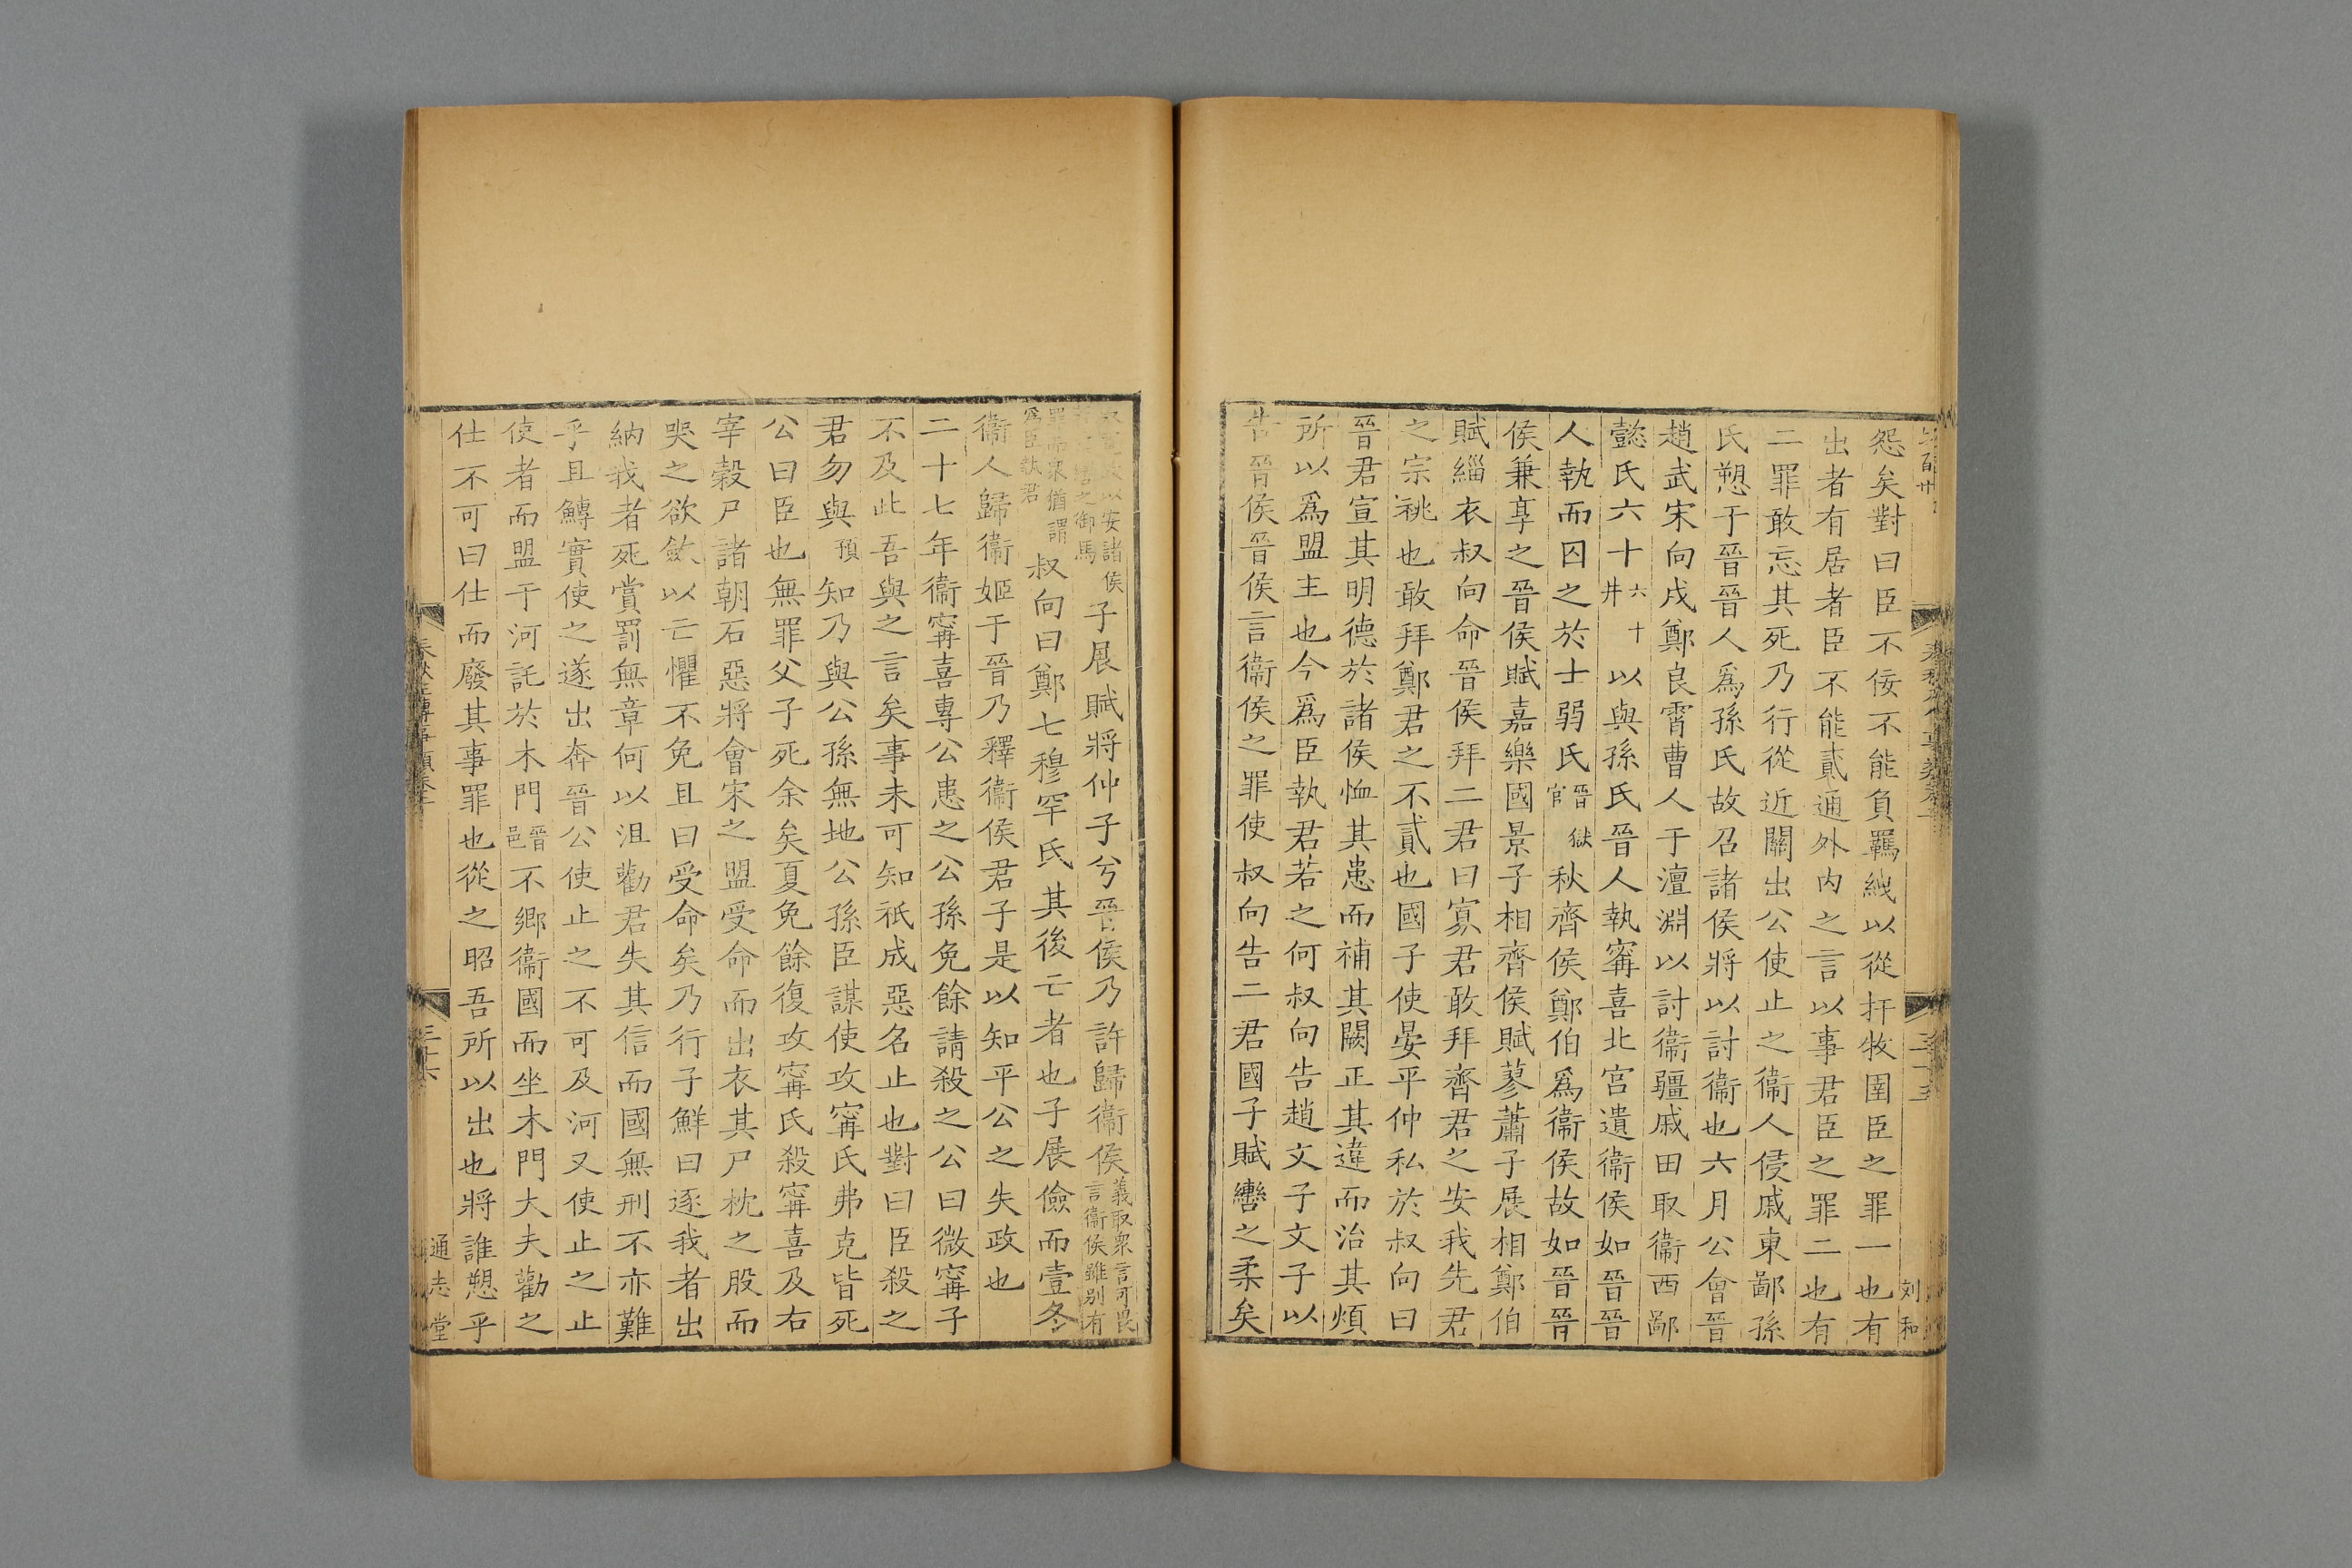 怨矣對曰臣不佞不能負羈絏以從扞牧圉臣之罪一也有
出者有居者臣不能貳通外内之言以事君臣之罪二也有
二罪敢忘其死乃行從近關出公使止之衞人侵戚東鄙孫
氏愬于晉晉人爲孫氏故召諸侯將以討衞也六月公會晉
趙武宋向戌鄭良霄曹人于澶淵以討衞疆戚田取衞西鄙
懿氏六十六十井以與孫氏晉人執甯喜北宫遺衞侯如晉晉
人執而囚之於士弱氏晉獄官秋齊侯鄭伯爲衞侯故如晉晉
侯兼享之晉侯賦嘉樂國景子相齊侯賦蓼蕭子展相鄭伯
賦緇衣叔向命晉侯拜二君曰寡君敢拜齊君之安我先君
之宗祧也敢拜鄭君之不貳也國子使晏平仲私於叔向曰
晉君宣其明德於諸侯恤其患而補其闕正其違而治其煩
所以爲盟主也今爲臣執君若之何叔向告趙文子文子以
告晉侯晉侯言衞侯之罪使叔向告二君國子賦轡之柔矣
以安諸侯
轡之御馬
子展賦將仲子兮晉侯乃許歸衞侯義取衆言可畏
言衞侯雖别有
罪而衆猶謂
爲臣執君
叔向曰鄭七穆罕氏其後亡者也子展儉而壹冬
衞人歸衞姬于晉乃釋衞侯君子是以知平公之失政也
二十七年衞甯喜專公患之公孫免餘請殺之公曰微甯子
不及此吾與之言矣事未可知祇成惡名止也對曰臣殺之
君勿與預知乃與公孫無地公孫臣謀使攻甯氏弗克皆死
公曰臣也無罪父子死余矣夏免餘復攻甯氏殺甯喜及右
宰穀尸諸朝石惡將會宋之盟受命而出衣其尸枕之股而
哭之欲斂以亡懼不免且曰受命矣乃行子鮮曰逐我者出
納我者死賞罰無章何以沮勸君失其信而國無刑不亦難
乎且鱄實使之遂出奔晉公使止之不可及河又使止之止
使者而盟于河託於木門晉邑不鄉衞國而坐木門大夫勸之
仕不可曰仕而廢其事罪也從之昭吾所以出也將誰愬乎
通志堂